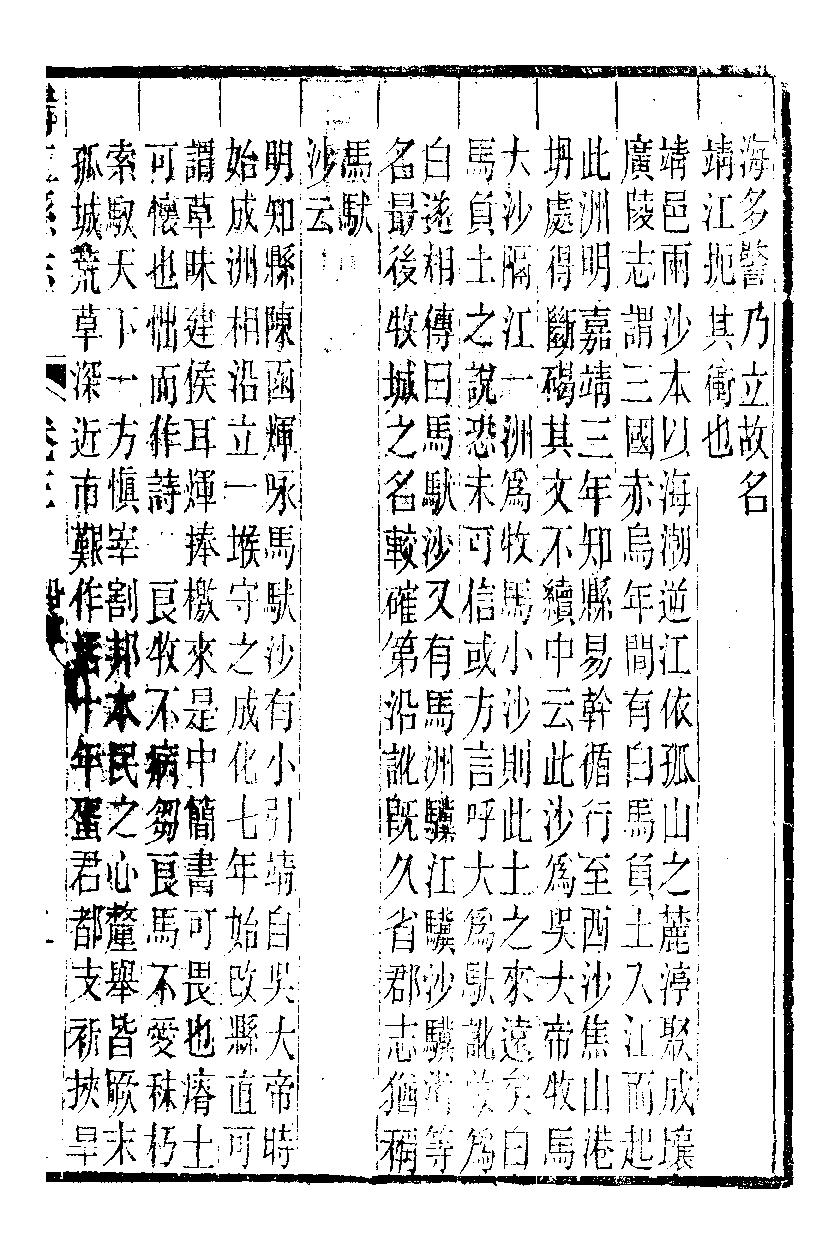 海多警乃立故名
靖江扼其衝也
靖邑兩沙本以海潮逆江依孤山之麓渟聚成壤
廣陵志謂三國赤烏年間有白馬負土入江而起
此洲明嘉靖三年知縣易幹循行至西沙焦山港
坍處得斷碣其文不續中云此沙爲吳大帝牧馬
大沙隔江一洲爲牧馬小沙則此土之來遠矣白
馬負土之說恐未可信或方言呼大爲馱訛故爲
白遂相傳曰馬馱沙又有馬洲驥江驥沙驥渚等
名最後牧城之名較確第沿訛旣久省郡志猶稱
馬馱
沙云
明知縣陳函輝咏馬馱沙有小引靖自吳大帝時
始成洲相沿立一堠守之成化七年始改縣直可
謂草昧建侯耳輝捧檄來是中簡書可畏也瘠土
可懷也怞而作詩 良牧不病芻良馬不愛秣朽
索馭天下一方愼宰割邦本民之心釐舉皆厥末
孤城荒草深近市艱作活十年蛋君都支祈挾旱
江縣志 卷三